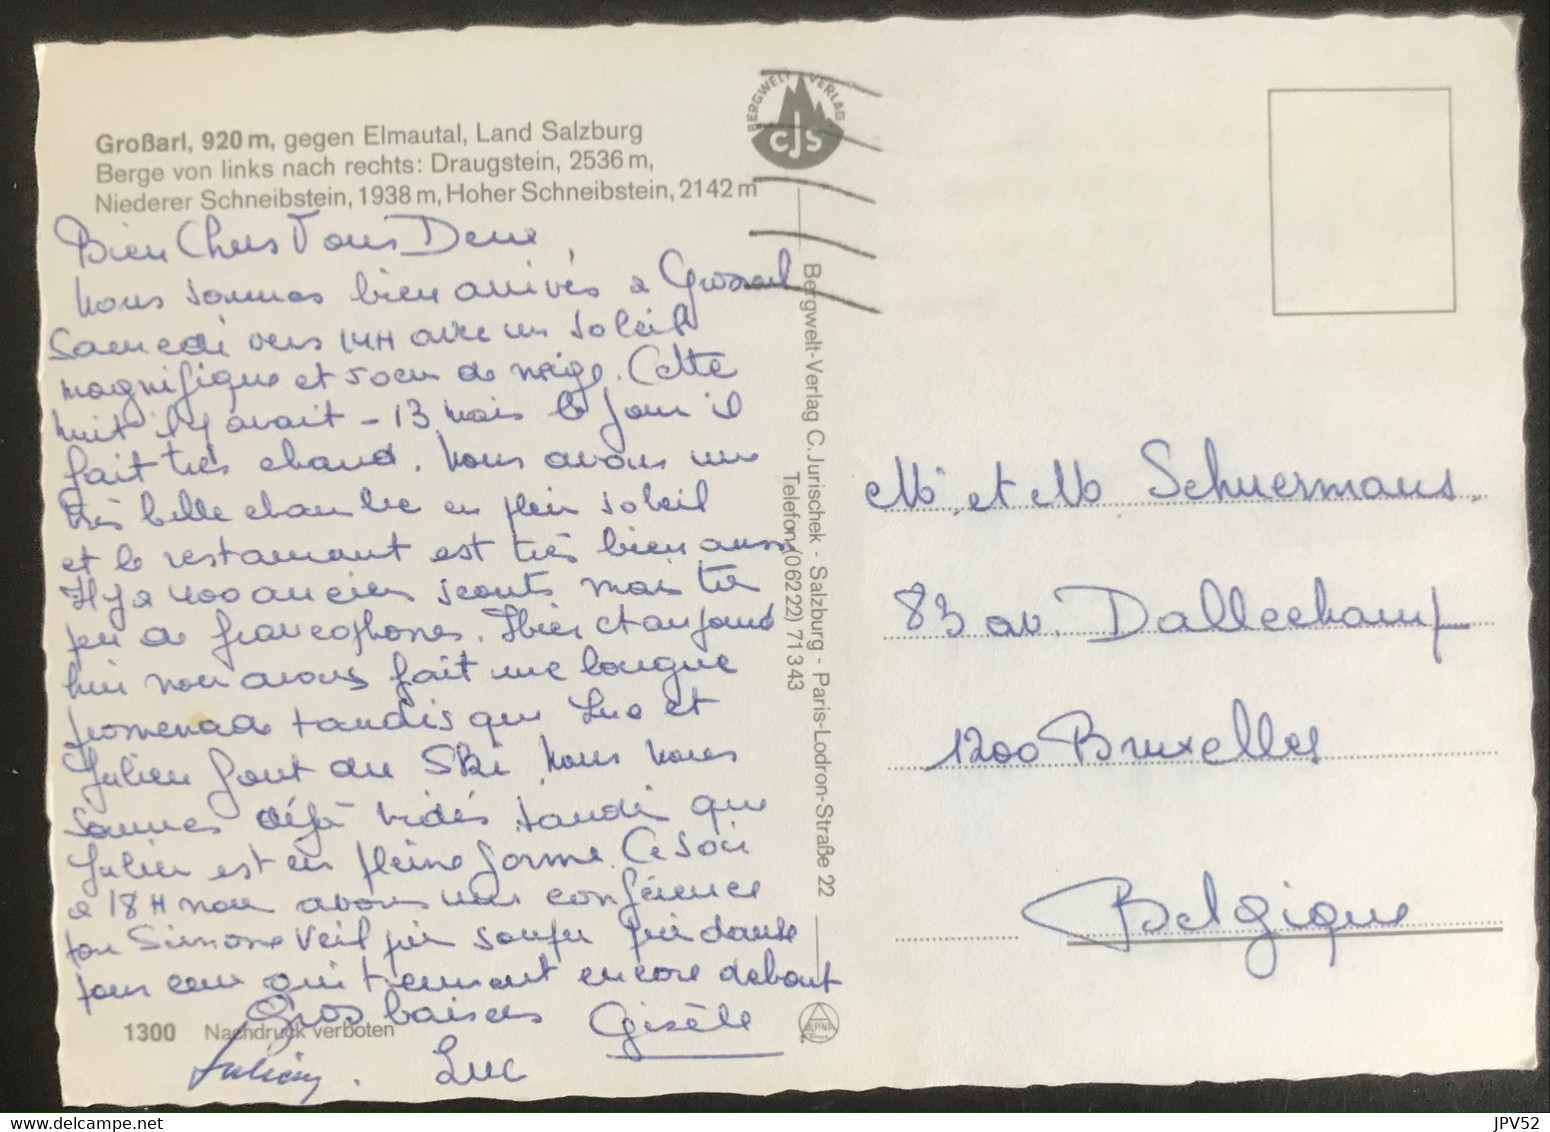 Großarl, 920 m, gegen Elmautal, Land Salzburg
Berge von links nach rechts: Draugstein, 2536 m,
Niederer Schneibstein, 1938 m, Hoher Schneibstein, 2142 m
BERGWELT VERLAG
CJS
Bien Chers Vous Deux,
Nous sommes bien arrivés à Grosarl
Samedi vers 14H avec un soleil
magnifique et de neige. Cette
nuit il y avait -13 mais le jour il
fait très chaud. Nous avons une
très belle chambre en plein soleil
et le restaurant est très bien aussi
Il y a 400 anciens scouts mais très
peu de francophones. Hier et aujourd
hui nous avons fait une longue
promenade tandis que Luc et
Julien font du Ski. Nous nous
sommes déjà tandis que
Julien est en pleine forme. Ce soir
à 18H nous avons une conférence
Simone Veil puis souper puis danse
pour ceux qui tiennent encore debout
Gros baisers Gisèle
Julien. Luc
1300 Nachdruck verboten
Bergwelt-Verlag C. Jurischek - Salzburg - Paris-Lodron-Straße 22
Telefon (06222) 71343
ALPINA
M. et M Schuermans.
83 av. Dallechamp
1200 Bruxelles
Belgique
JPV52